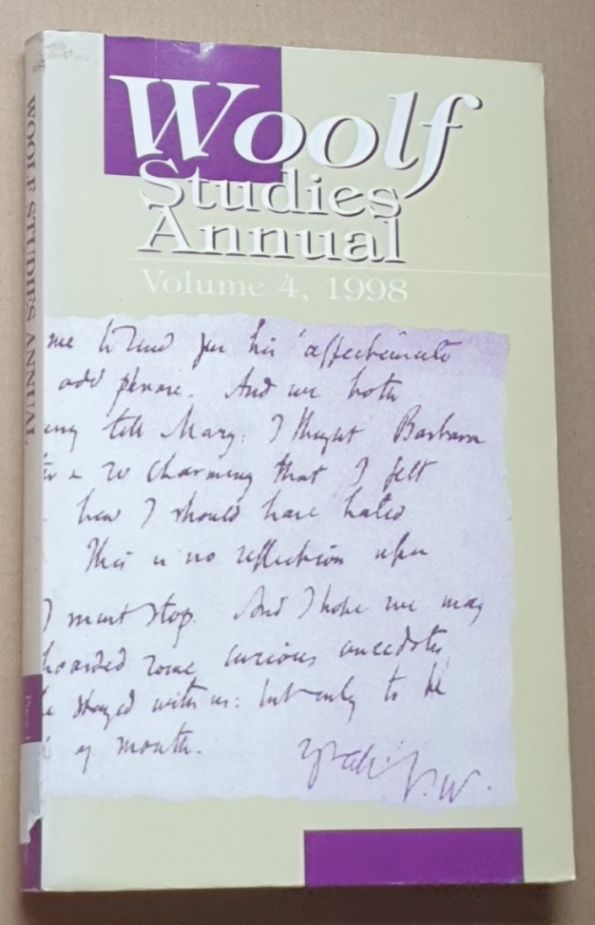 Woolf
Studies
Annual
Volume 4, 1998
WOOLF STUDIES ANNUAL
me to send you his 'affectionate
odd phrase. And we both
tell Mary: I thought Barbara
so charming that I felt
how I should have hated
This is no reflection upon
I must stop. And I hope we may
hoarded some curious anecdotes
stayed with us: but only to be
of mouth.
V.W.